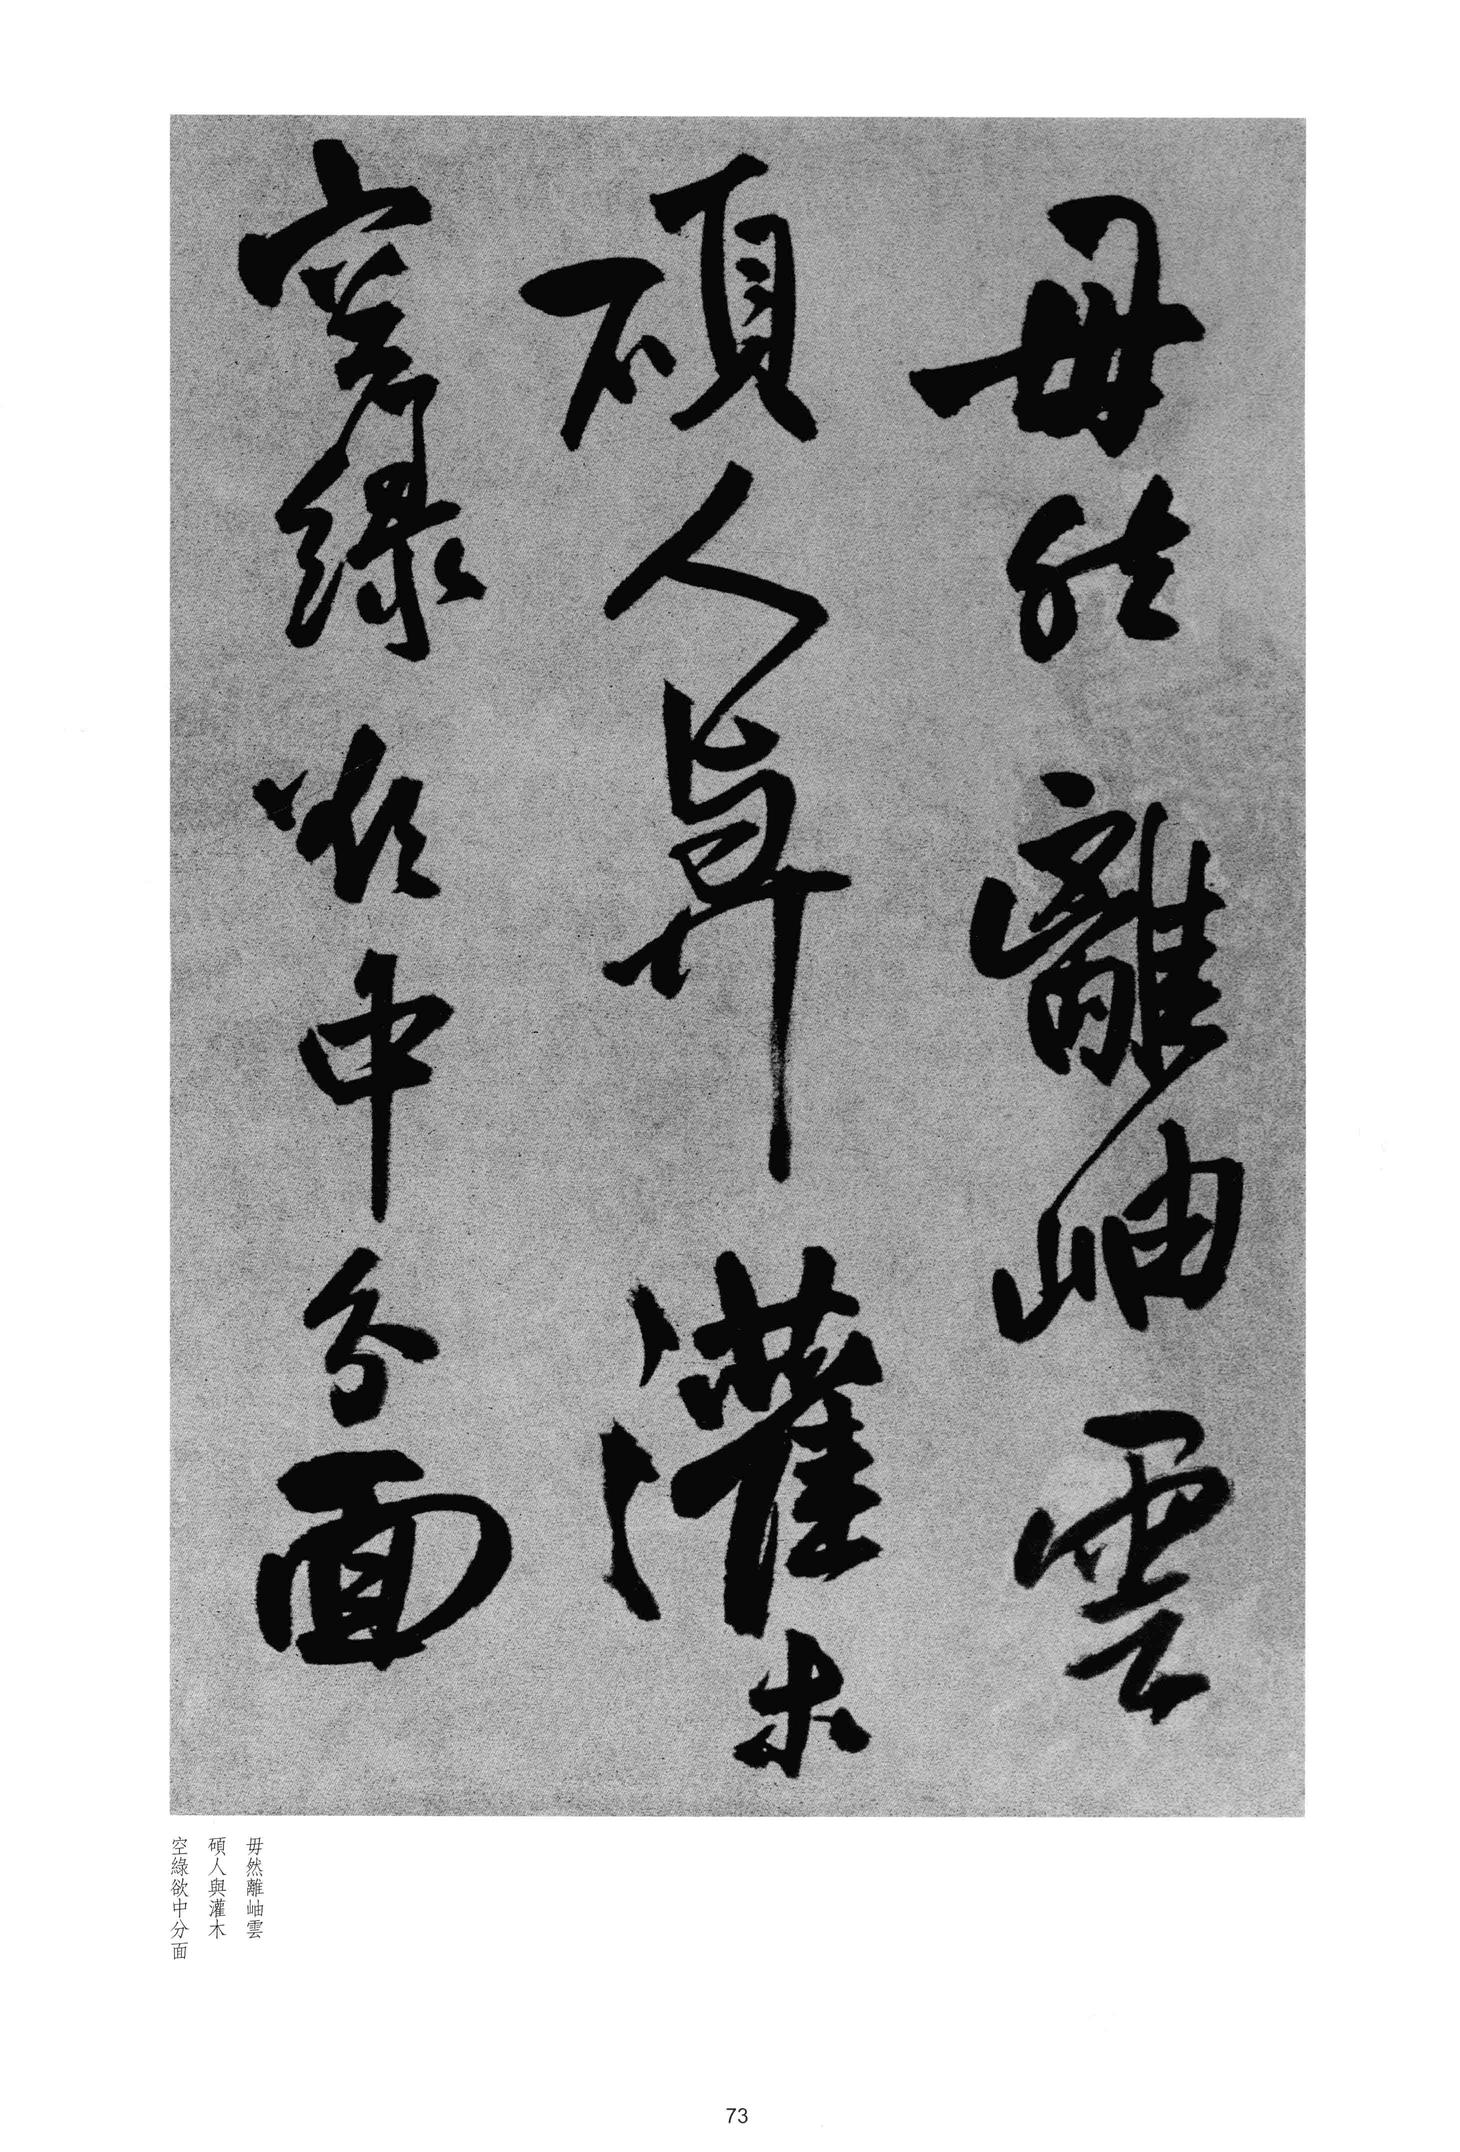 毋然離岫雲
碩人與灌木
空綠欲中分面
毋然離岫雲
碩人與灌木
空綠欲中分面
73